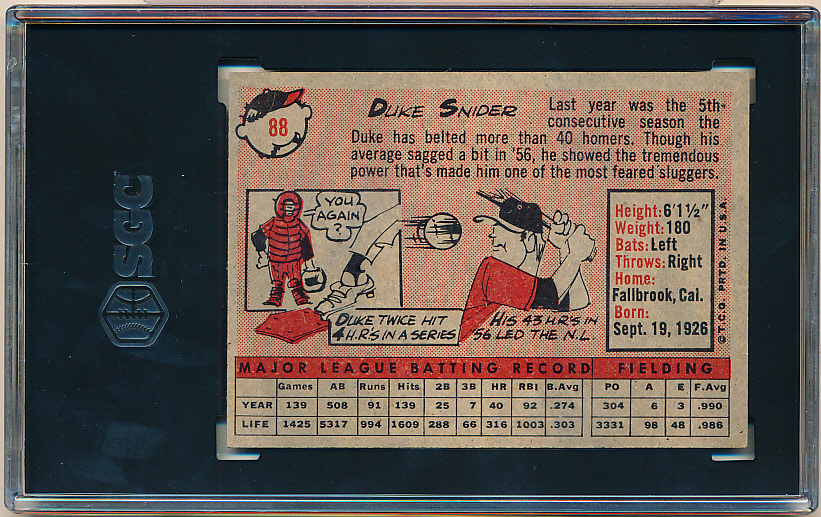 SGC
88
DUKE SNIDER
Last year was the 5th
consecutive season the
Duke has belted more than 40 homers. Though his
average sagged a bit in '56, he showed the tremendous
power that's made him one of the most feared sluggers.
YOU
AGAIN
?
DUKE TWICE HIT
4 H.R'S IN A SERIES
HIS 43 H.R'S IN
'56 LED THE N.L.
Height: 6'1½"
Weight: 180
Bats: Left
Throws: Right
Home:
Fallbrook, Cal.
Born:
Sept. 19, 1926
© T.C.G. PRTD. IN U.S.A.
MAJOR LEAGUE BATTING RECORD FIELDING
Games AB Runs Hits 2B 3B HR RBI B.Avg PO A E F.Avg
YEAR 139 508 91 139 25 7 40 92 .274 304 6 3 .990
LIFE 1425 5317 994 1609 288 66 316 1003 .303 3331 98 48 .986